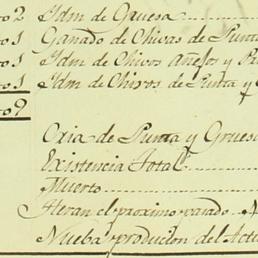 ro2 Idm de Gruesa
ro1 Ganado de Chivas de Punta
ro1 Idm de Chivos Añejos y Pri
ro1 Idm de Chivos de Punta y G
ro9
Cria de Punta y Gruesa
Existencia Total
Muerto
Hieran el proximo parado
Nueba producion del Actu